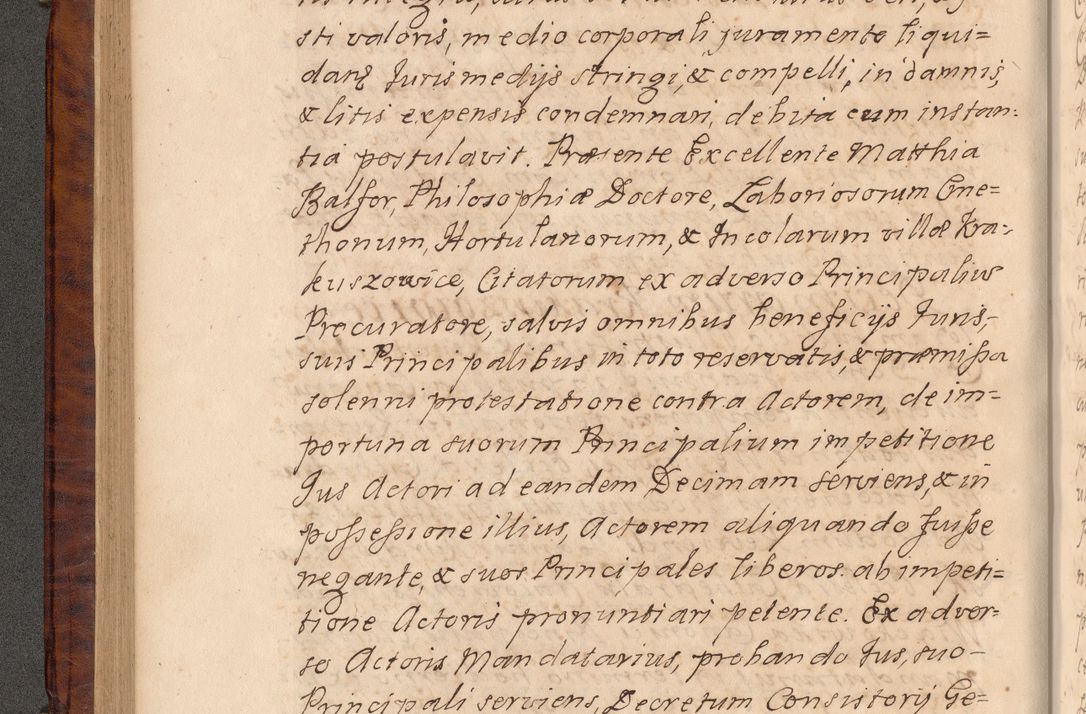 sti valoris, medio corporali juramento liqui=
darą Juris medijs stringi, & compelli, in damnis,
& litis expensis condemnari, debita cum instan:
tia postulavit. Præsente Excellente Matthia
Balfor, Philosophiæ Doctore, Laboriosorum Cne=
thonum, Hortulanorum, & Incolarum villæ Kra=
kuszowice, Citatorum ex adverso Principalium
Procuratore, salvis omnibus beneficijs Juris,
suis Principalibus in toto reservatis, & præmissa
solenni protestatione contra Actorem, de im=
portuna suorum Principalium impetitione
Jus Actori ad eandem Decimam serviens, & in
possessione illius, Actorem aliquando fuisse
negante, & suos Principales liberos ab impeti=
tione Actoris pronuntiari petente. Ex adver=
so Actoris Mandatarius, probando Jus, suo
Principali serviens, Decretum Consistorij Ge=